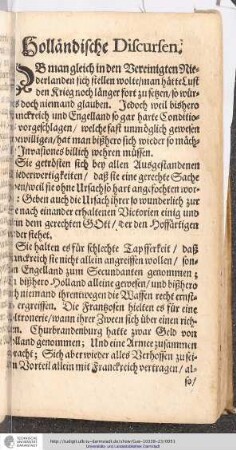 Holländische Discursen.
OB man gleich in den Vereinigten Nie-
derlanden sich stellen wolte/ man hätte Lust
den Krieg noch länger fort zu setzen/ so wür-
doch niemand glauben. Jedoch weil bishero
Franckreich und Engelland so gar harte Conditio-
vorgeschlagen/ welche fast unmöglich gewesen
bewilligen/ hat man bißhero sich wieder so mäch-
Invasiones billich wehren müssen.
Sie getrösten sich bey allen Ausgestandenen
Wiederwertigkeiten/ daß sie eine gerechte Sache
weil sie ohne Ursach so hart angefochten wor-
: Geben auch die Ursach ihrer so wunderlich zur
nach einander erhaltenen Victorien einig und
dem gerechten GOtt/ der den Hoffärtigen
der stehet.
Sie halten es für schlechte Tapfferkeit/ daß
Franckreich sie nicht allein angreiffen wollen/ son-
Engelland zum Secundanten genommen;
bißhero Holland alleine gewesen/ und bißhero
niemand ihrentwegen die Waffen recht ernst-
ergreiffen. Die Frantzosen hielten es für eine
Poltronerie/ wann ihrer Zween sich über einen rich-
. Churbrandenburg hatte zwar Geld von
Holland genommen; Und eine Armee zusammen
gebracht; Sich aber wieder alles Verhoffen zu sei-
Vorteil allein mit Franckreich vertragen/ al-
so/